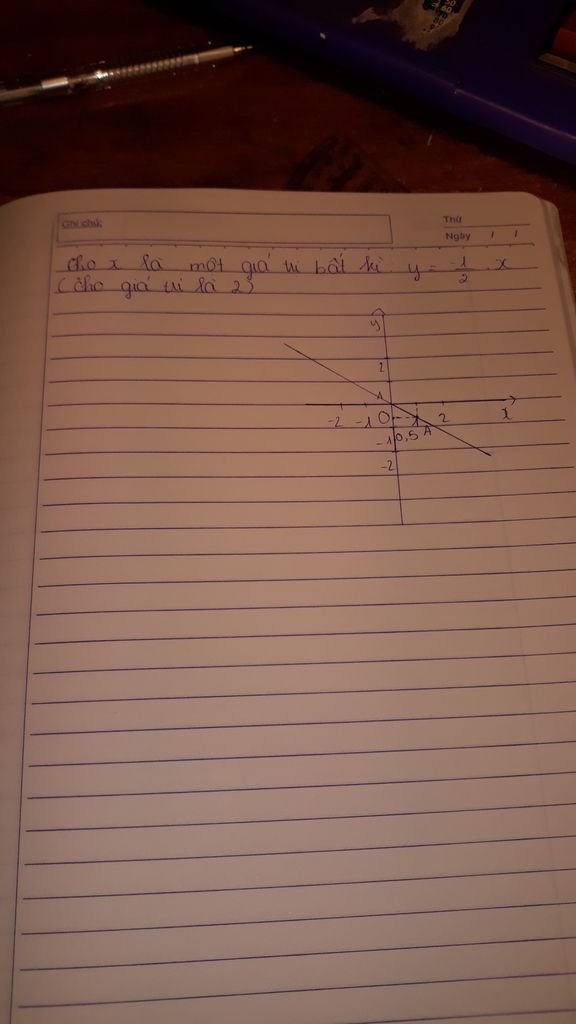 Ghi chú:
Thứ
Ngày / /
Cho x là một giá trị bất kì: y = -1/2 . x
(cho giá trị là 2)
y
2
1
-2 -1 O 1 2 x
-1 0,5 A
-2